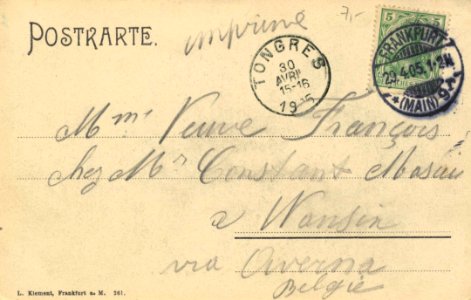 POSTKARTE.
imprimé
7,-
5
FRANKFURT
(MAIN) 9
29.4.05. 1-2N.
TONGRES
30
AVRIL
15-16
19 5
Mme Veuve François
chez Mr Constant
à Wansin
via Avernas
Belgie
L. Klement, Frankfurt a. M. 261.